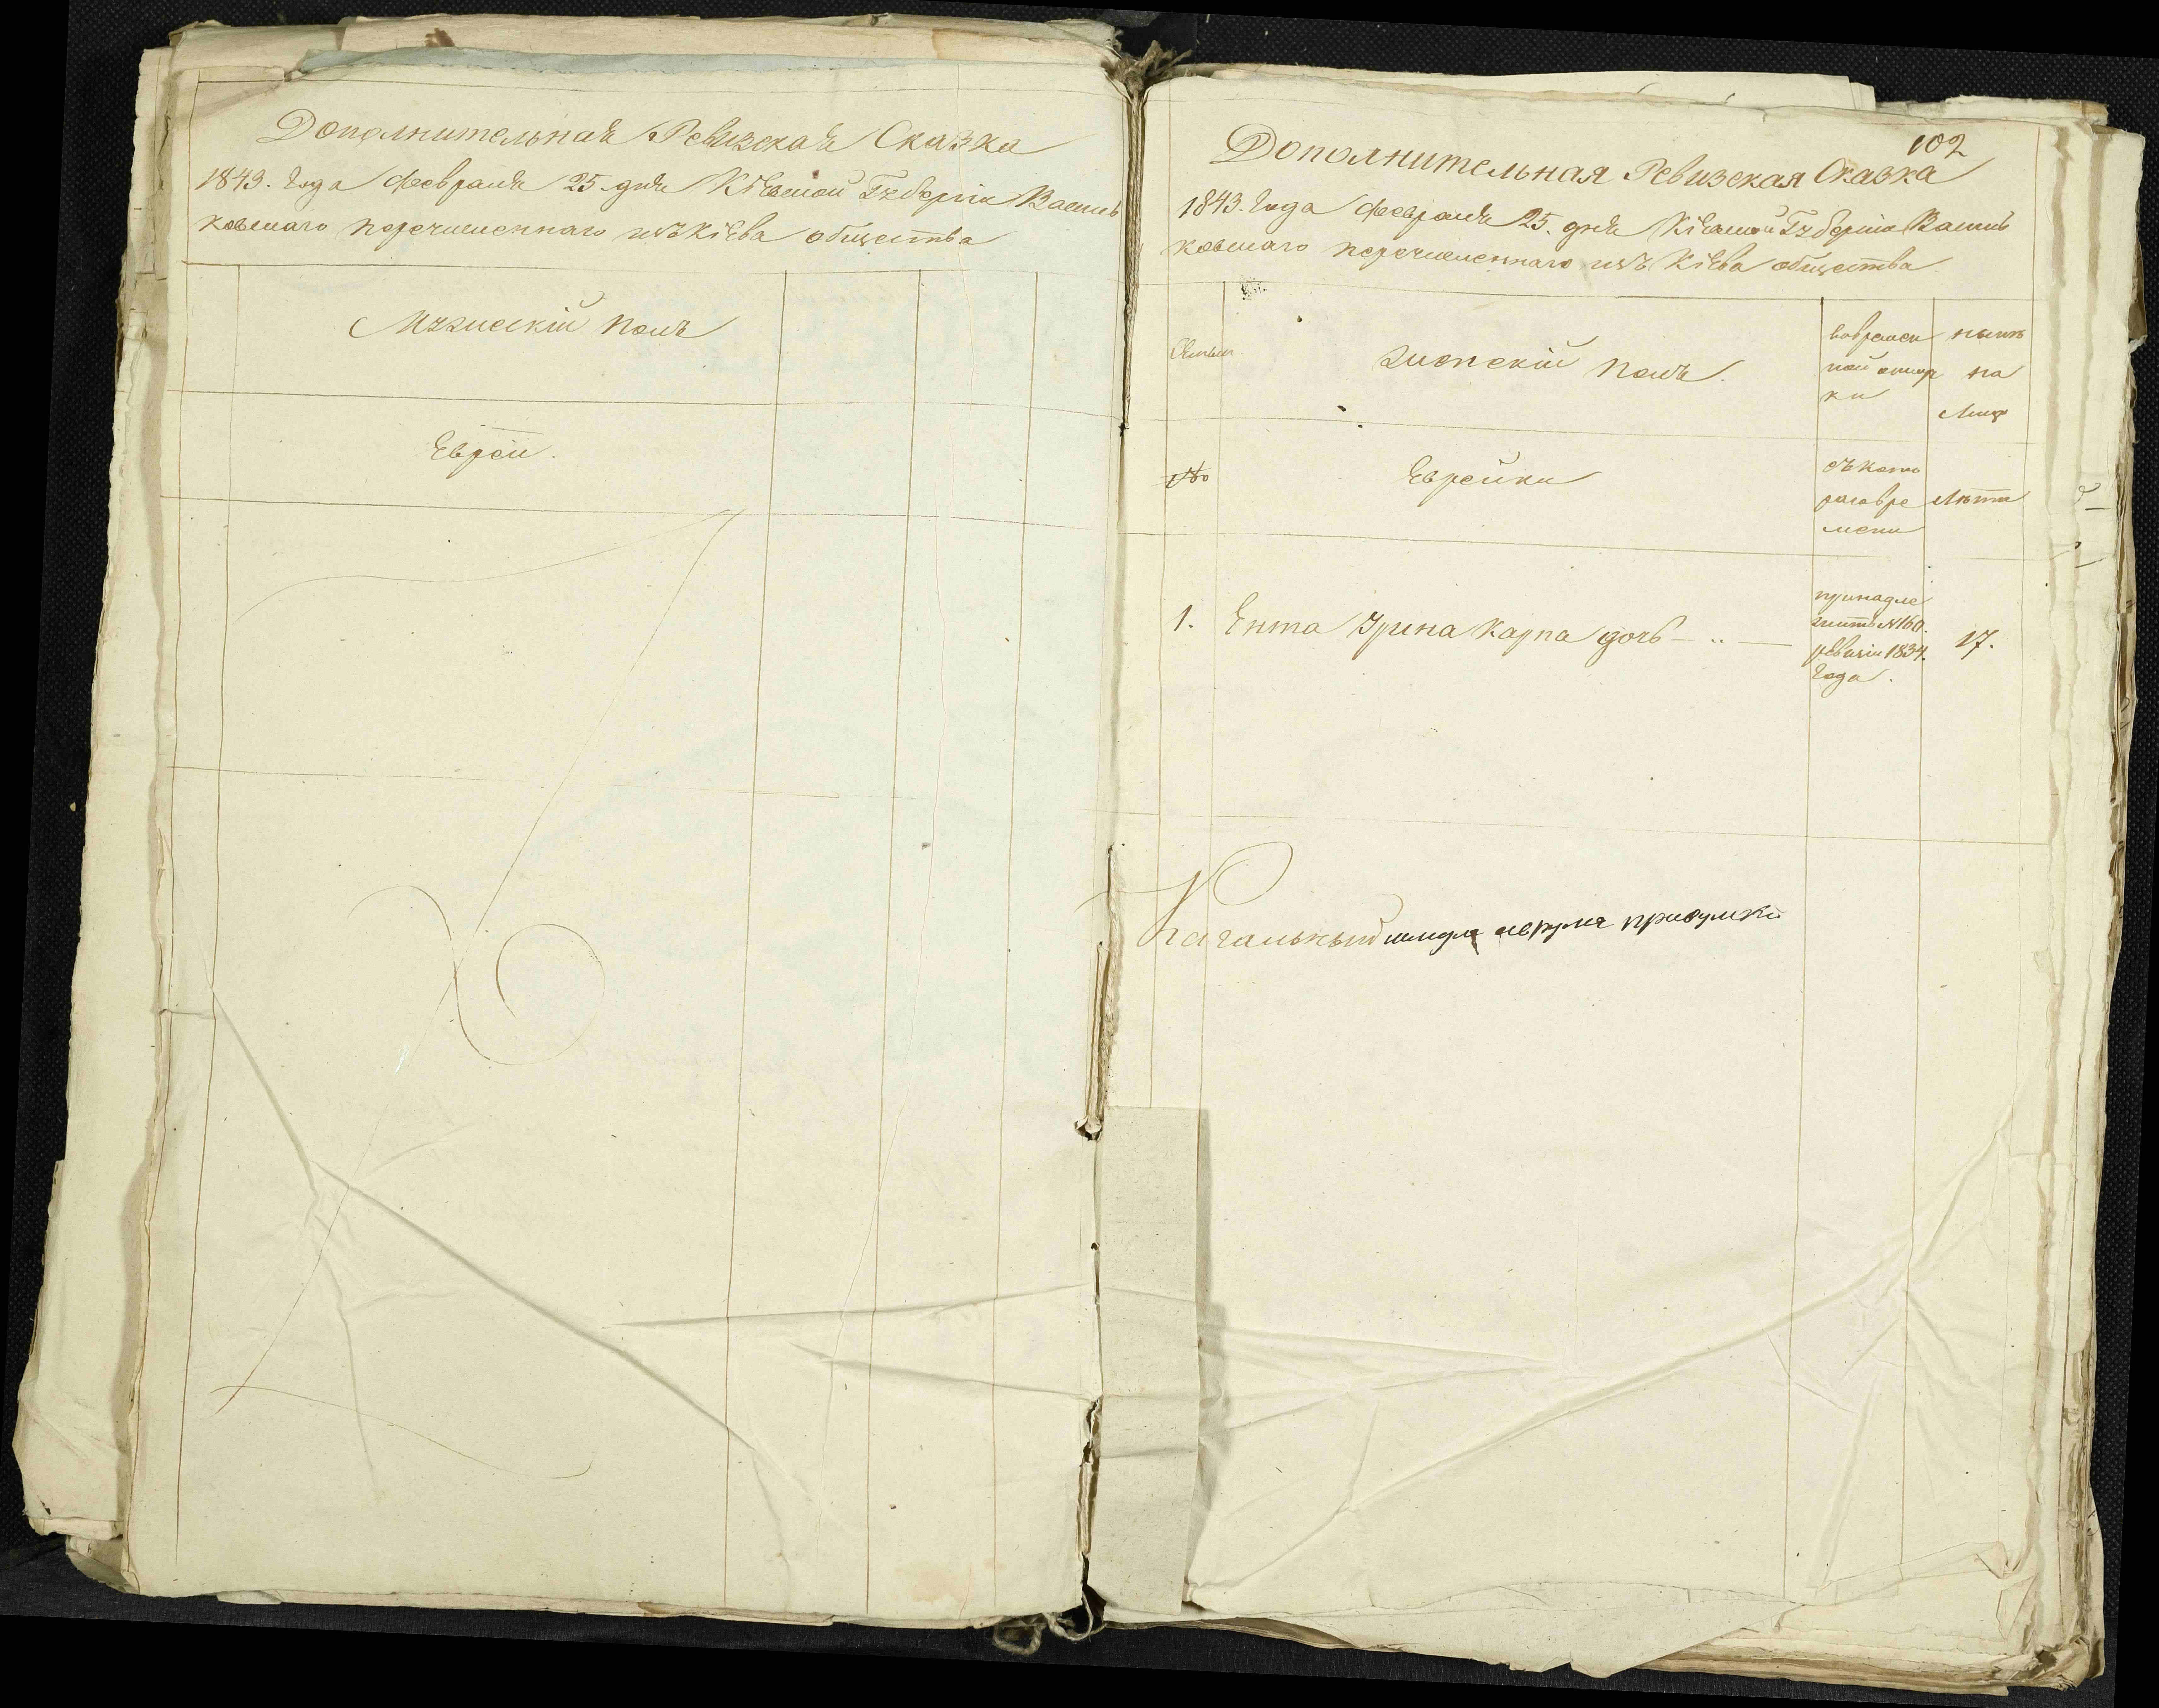 Дополнительная Ревизская Сказка
1843. Года Февраля 25. дня Кіевской Губерніи Василь
ковскаго перечисленнаго изъ Кіева общества
Мужескій полъ
Евреи.
102
Дополнительная Ревизская Сказка
1843. Года Февраля 25. дня Кіевской Губерніи Василь
ковскаго перечисленнаго изъ Кіева общества
Семьи
Женскій полъ.
вовремен
ной отлуч
ки
нынѣ
на
Лицо
№
Еврейки
съ кото
раго вре
мени
Лѣта
1. Ента Ірина Карпа дочь
принадле
житъ №160.
ревизіи 1834.
Года.
17.
Кагальный